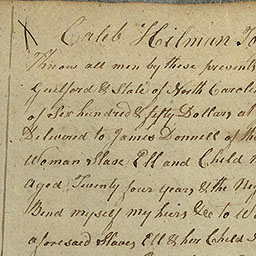 Caleb Hilman To
Know all men by these presents
Guilford & State of North Carolin
of Six hundred & fifty Dollars at
Delivered to James Donnell of the
Woman Slave Ell and Child
Aged Twenty four years & the Neg
Bind myself my heirs &c to W
aforesaid Slaves Ell & her Child